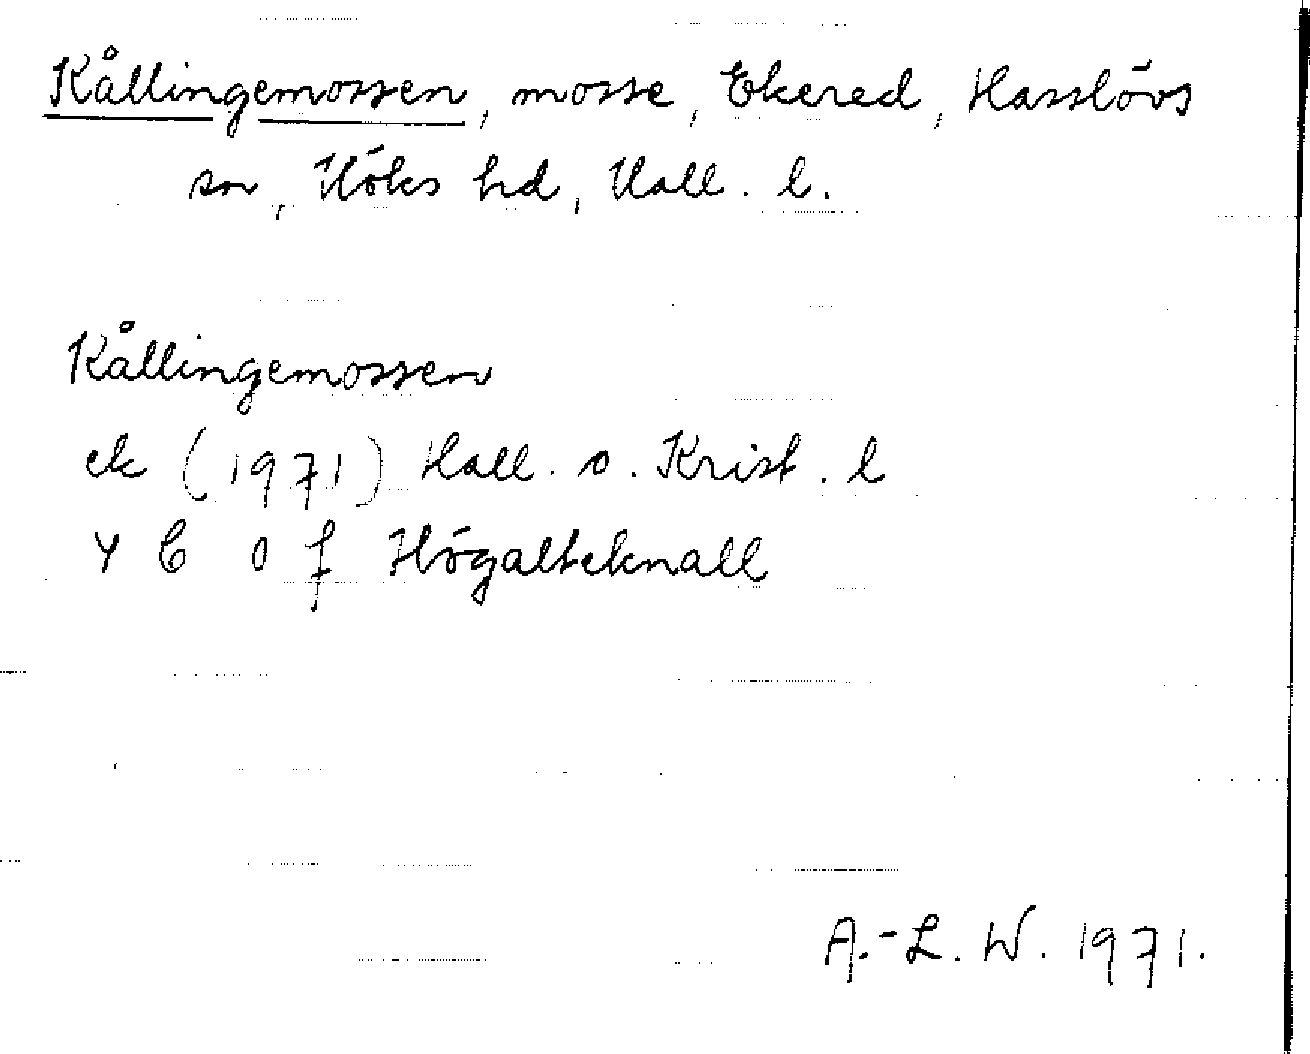 Kållingemossen, mosse, Ekered, Hasslövs
sn, Höks hd, Hall. l.
Kållingemossen
ek (1971) Hall. o. Krist. l
4 C 0 f Högalteknall
A.-L. W. 1971.